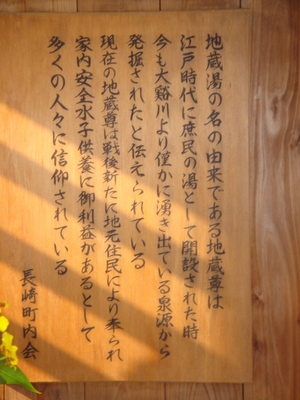 地蔵湯の名の由来である地蔵尊は
江戸時代に庶民の湯として開設された時
今も大谿川より僅かに湧き出ている泉源から
発掘されたと伝えられている
現在の地蔵尊は戦後新たに地元住民により奉られ
家内安全水子供養に御利益があるとして
多くの人々に信仰されている
長崎町内会